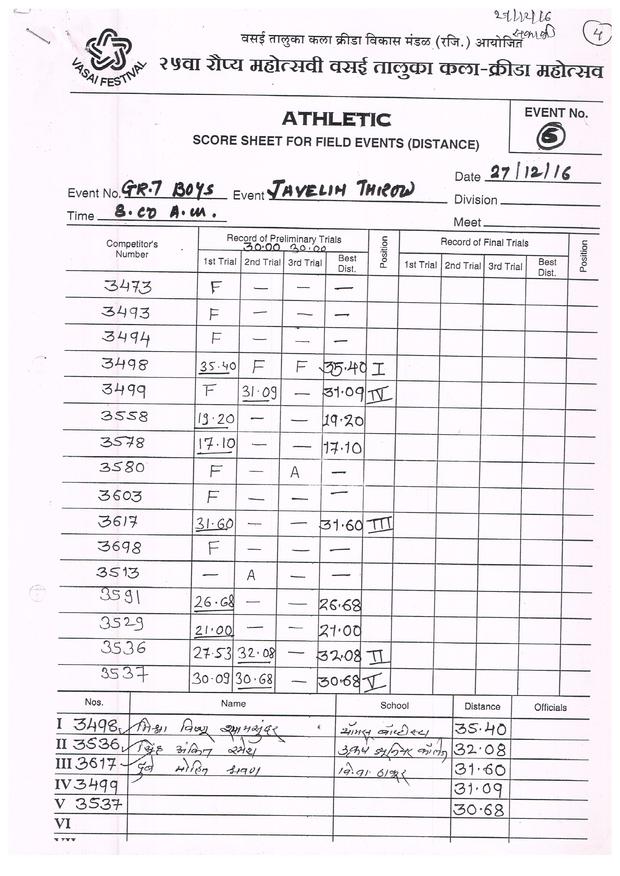 27/12/16
सकाळी
4
VASAI FESTIVAL
वसई तालुका कला क्रीडा विकास मंडळ (रजि.) आयोजित
२५वा रौप्य महोत्सवी वसई तालुका कला-क्रीडा महोत्सव
ATHLETIC
SCORE SHEET FOR FIELD EVENTS (DISTANCE)
EVENT No.
5
Date 27/12/16
Event No. GR.7 BOYS Event JAVELIN THROW Division
Time 8.00 A.M. Meet
Competitor's Number Record of Preliminary Trials Position Record of Final Trials Position
30.00 30.00
1st Trial 2nd Trial 3rd Trial Best Dist. 1st Trial 2nd Trial 3rd Trial Best Dist.
3473 F — — —
3493 F — — —
3494 F — — —
3498 35.40 F F 35.40 I
3499 F 31.09 — 31.09 IV
3558 19.20 — — 19.20
3578 17.10 — — 17.10
3580 F — A —
3603 F — — —
3617 31.60 — — 31.60 III
3698 F — — —
3513 — A — —
3591 26.68 — — 26.68
3529 21.00 — — 21.00
3536 27.53 32.08 — 32.08 II
3537 30.09 30.68 — 30.68 V
Nos. Name School Distance Officials
I 3498 मिश्रा विष्णु श्यामसुंदर 35.40
II 3536 सिंह अंकित रमेश 32.08
III 3617 दुबे मोहित श्रवण वि.वा ठाकूर 31.60
IV 3499 31.09
V 3537 30.68
VI